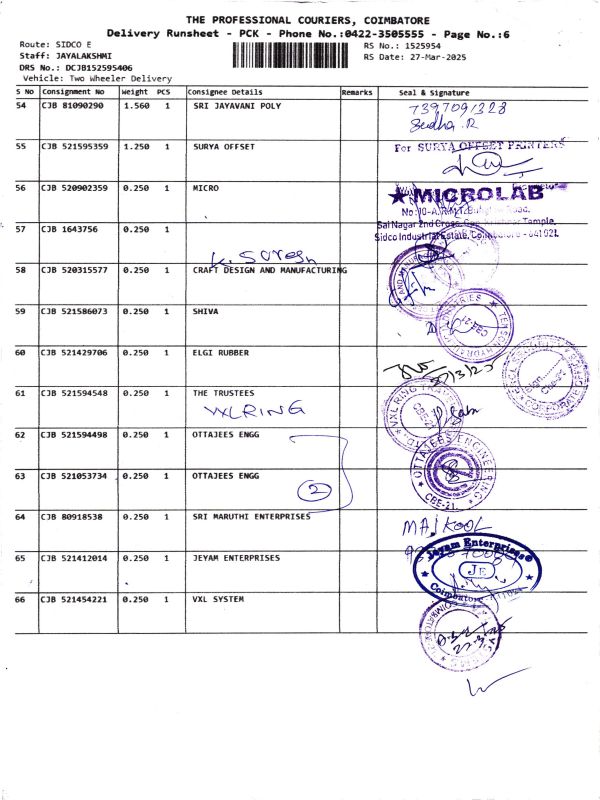 THE PROFESSIONAL COURIERS, COIMBATORE
Delivery Runsheet - PCK - Phone No.:0422-3505555 - Page No.:6
Route: SIDCO E
RS No.: 1525954
Staff: JAYALAKSHMI
RS Date: 27-Mar-2025
DRS No.: DCJB152595406
Vehicle: Two Wheeler Delivery
S No Consignment No Weight PCS Consignee Details Remarks Seal & Signature
54 CJB 81090290 1.560 1 SRI JAYAVANI POLY
7397091328
Sudha .R
55 CJB 521595359 1.250 1 SURYA OFFSET
For SURYA OFFSET PRINTERS
56 CJB 520902359 0.250 1 MICRO
★ MICROLAB
Sai Nagar 2nd Cross,
Sidco Industrial Estate, Coimbatore - 641 021.
57 CJB 1643756 0.250 1
K. Suresh
58 CJB 520315577 0.250 1 CRAFT DESIGN AND MANUFACTURING
59 CJB 521586073 0.250 1 SHIVA
CBE-21
60 CJB 521429706 0.250 1 ELGI RUBBER
27/3/25
61 CJB 521594548 0.250 1 THE TRUSTEES
VXLRING
VXL RING
CBE-21
62 CJB 521594498 0.250 1 OTTAJEES ENGG
OTTAJEES ENGINEERING
CBE-21.
63 CJB 521053734 0.250 1 OTTAJEES ENGG
2
64 CJB 80918538 0.250 1 SRI MARUTHI ENTERPRISES
65 CJB 521412014 0.250 1 JEYAM ENTERPRISES
Jeyam Enterprises
JE
Coimbatore
66 CJB 521454221 0.250 1 VXL SYSTEM